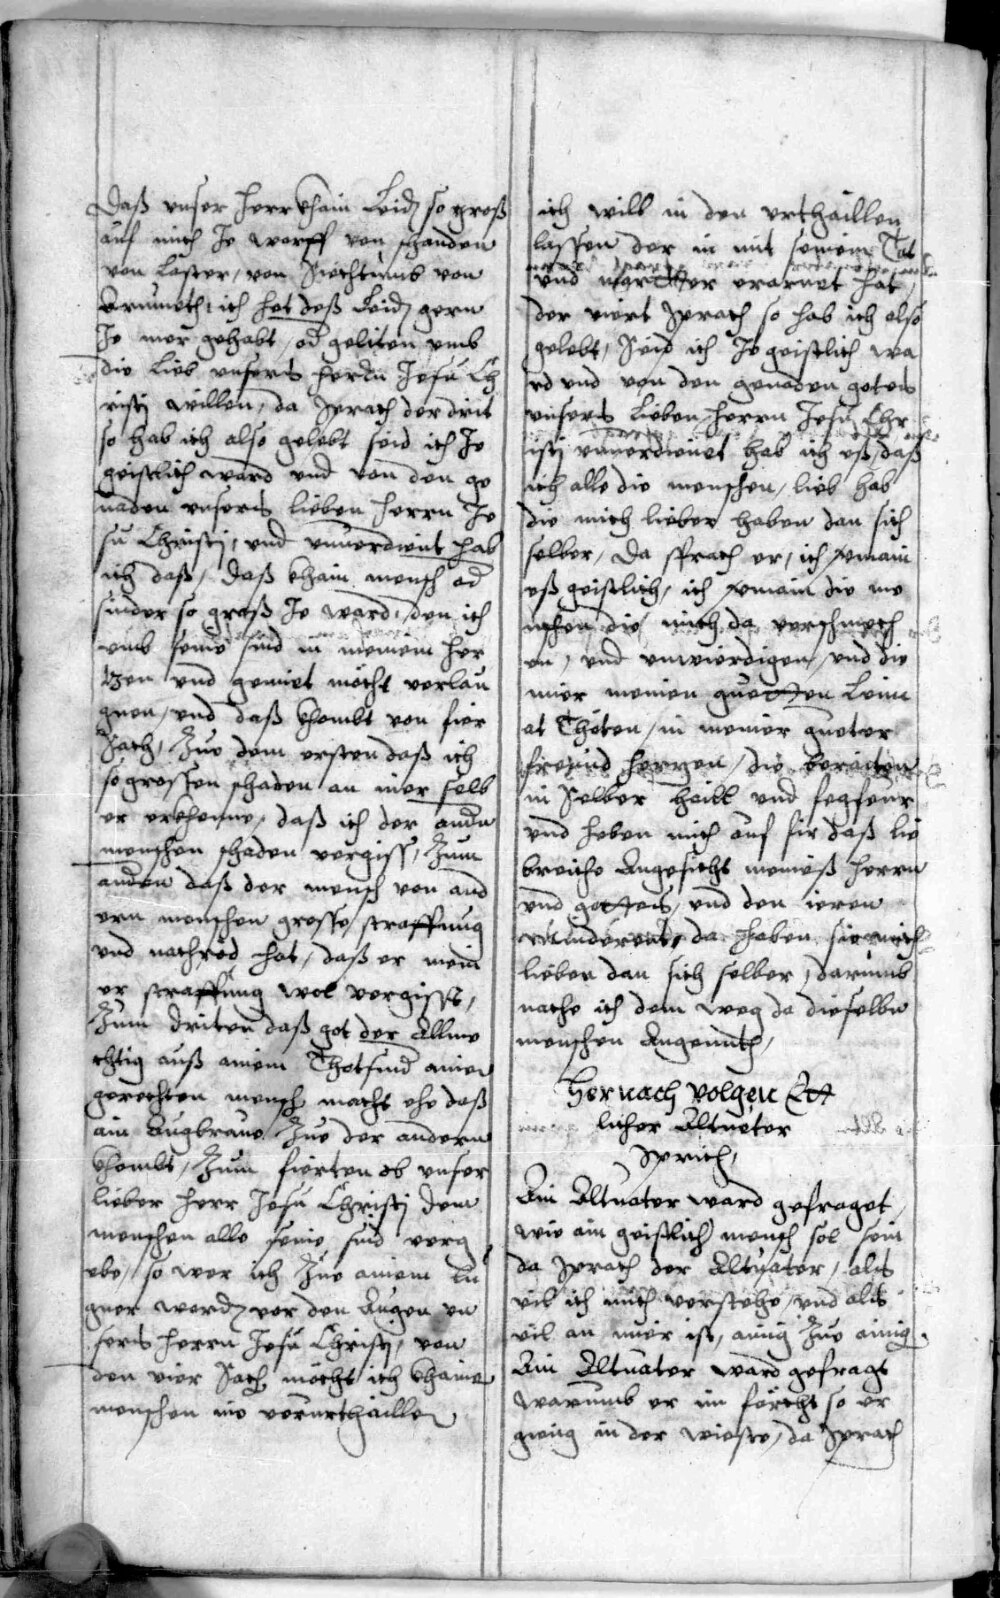 Daß vnser herr khain Leid so groß
auf mich Je warff von schanden
von Laster, von Siechtumb von
Armueth, ich het daß Leid gern
Je mer gehabt, od geliten vmb
die Lieb vnsers herrn Jesu Ch
risti willen, da sprach der drit
so hab ich also gelebt seid ich Je
geistlich ward vnd von den ge
naden vnsers lieben herrn Je
su Christi, vnd vnuerdient hab
ich daß, daß khain mensch od
sinder so groß Je ward, den ich
vmb seine sind in meinem her
tzen vnd gemiet möcht verlau
gnen, vnd daß khombt von fier
Sach, Zue dem ersten daß ich
so grossen schaden an mier selb
er erkhenne, daß ich der andn
menschen schaden vergiss, Zum
andern daß der mensch von and
ern menschen grosse straffung
vnd nachred hat, daß er mein
er straffung wol vergisst,
Zum driten daß got der Allme
chtig auß ainem Thotsind ainen
gerechten mensch macht ehe daß
ain Augbraue Zue der andern
khombt, Zum fierten ob vnser
lieber herr Jesu Christj dem
menschen alle seine sind verg
ebe, so wer ich Zue ainem lu
gner word vor den Augen vn
sers herrn Jesu Christj, von
den vier Sach möcht ich khaine
menschen nie verurthaillen
ich will in den vrthaillen
lassen der in mit seinem Tot
vnd marter erarnet hat,
der viert sprach so hab ich also
gelebt, Seid ich Je geistlich wa
rd vnd von den genaden gotes
vnsers Lieben herrn Jesu Chr
isti vnuerdienet hab ich eß, daß
ich alle die menschen, lieb hab
die mich lieber haben dan sich
selber, Da sprach er, ich vermain
eß geistlich, ich vermain die me
nschen die mich da verschmech
en, vnd vnwierdigen, vnd die
mier meinen guetten Leim
at Thöten, in meiner gueter
freind herzen, die beraiten
in Selber heill vnd fegfeur
vnd heben mich auf fir daß lie
breiche Angesicht meineß herrn
vnd gottes, vnd den ieren
da haben sie mich
lieber dan sich selber, darumb
nache ich dem weg da dieselbn
menschen Angemuth,
Hernach volgen Ett
licher Altueter
Sprich,
Ain Altuater ward gefraget,
wie ain geistlich mensch sol sein
da sprach der Altuater, als
vil ich mich verstehe, vnd als
vil an mier ist, ainig Zue ainig
Ain Altuater ward gefragt
warumb er im förcht so er
gieng in der wieste, da sprach